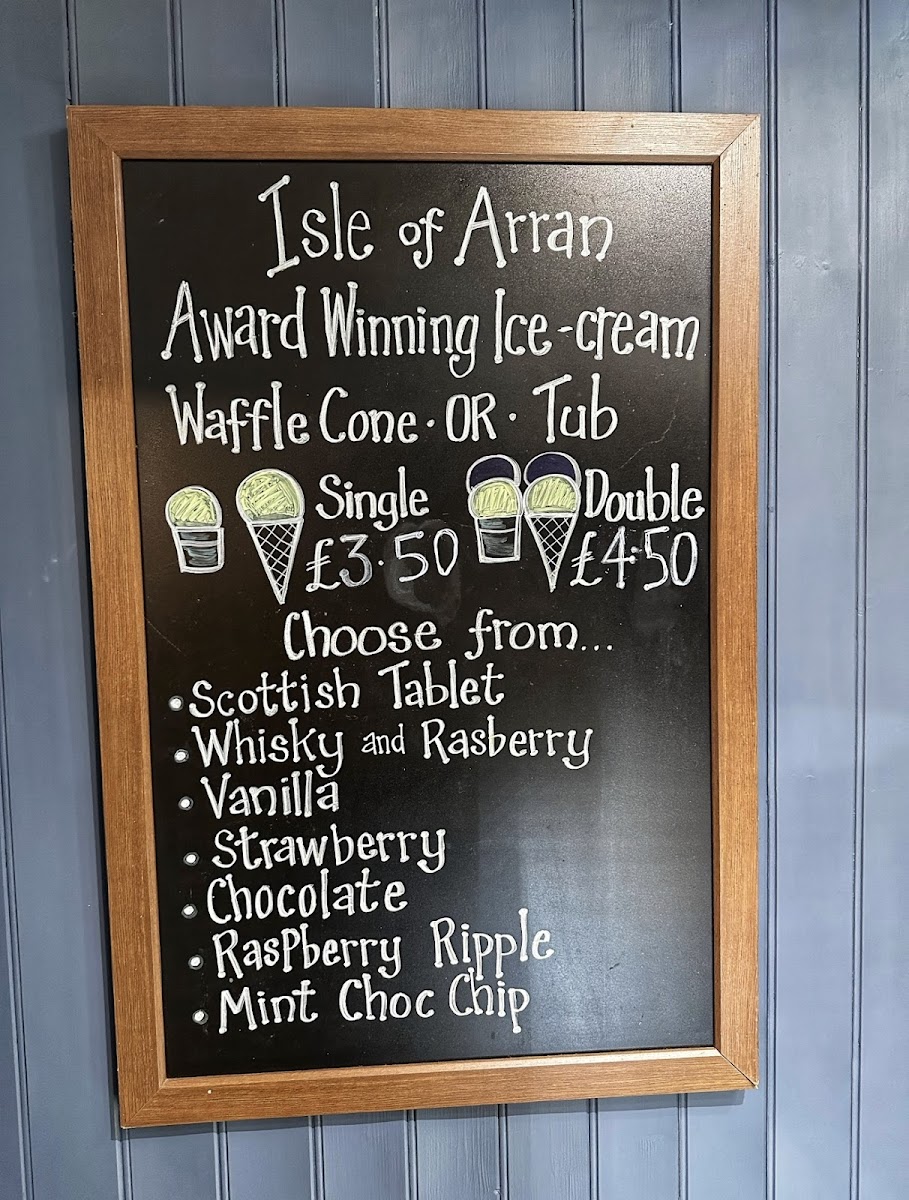 Isle of Arran
Award Winning Ice-cream
Waffle Cone · OR · Tub
Single Double
£3·50 £4·50
Choose from...
• Scottish Tablet
• Whisky and Rasberry
• Vanilla
• Strawberry
• Chocolate
• Raspberry Ripple
• Mint Choc Chip